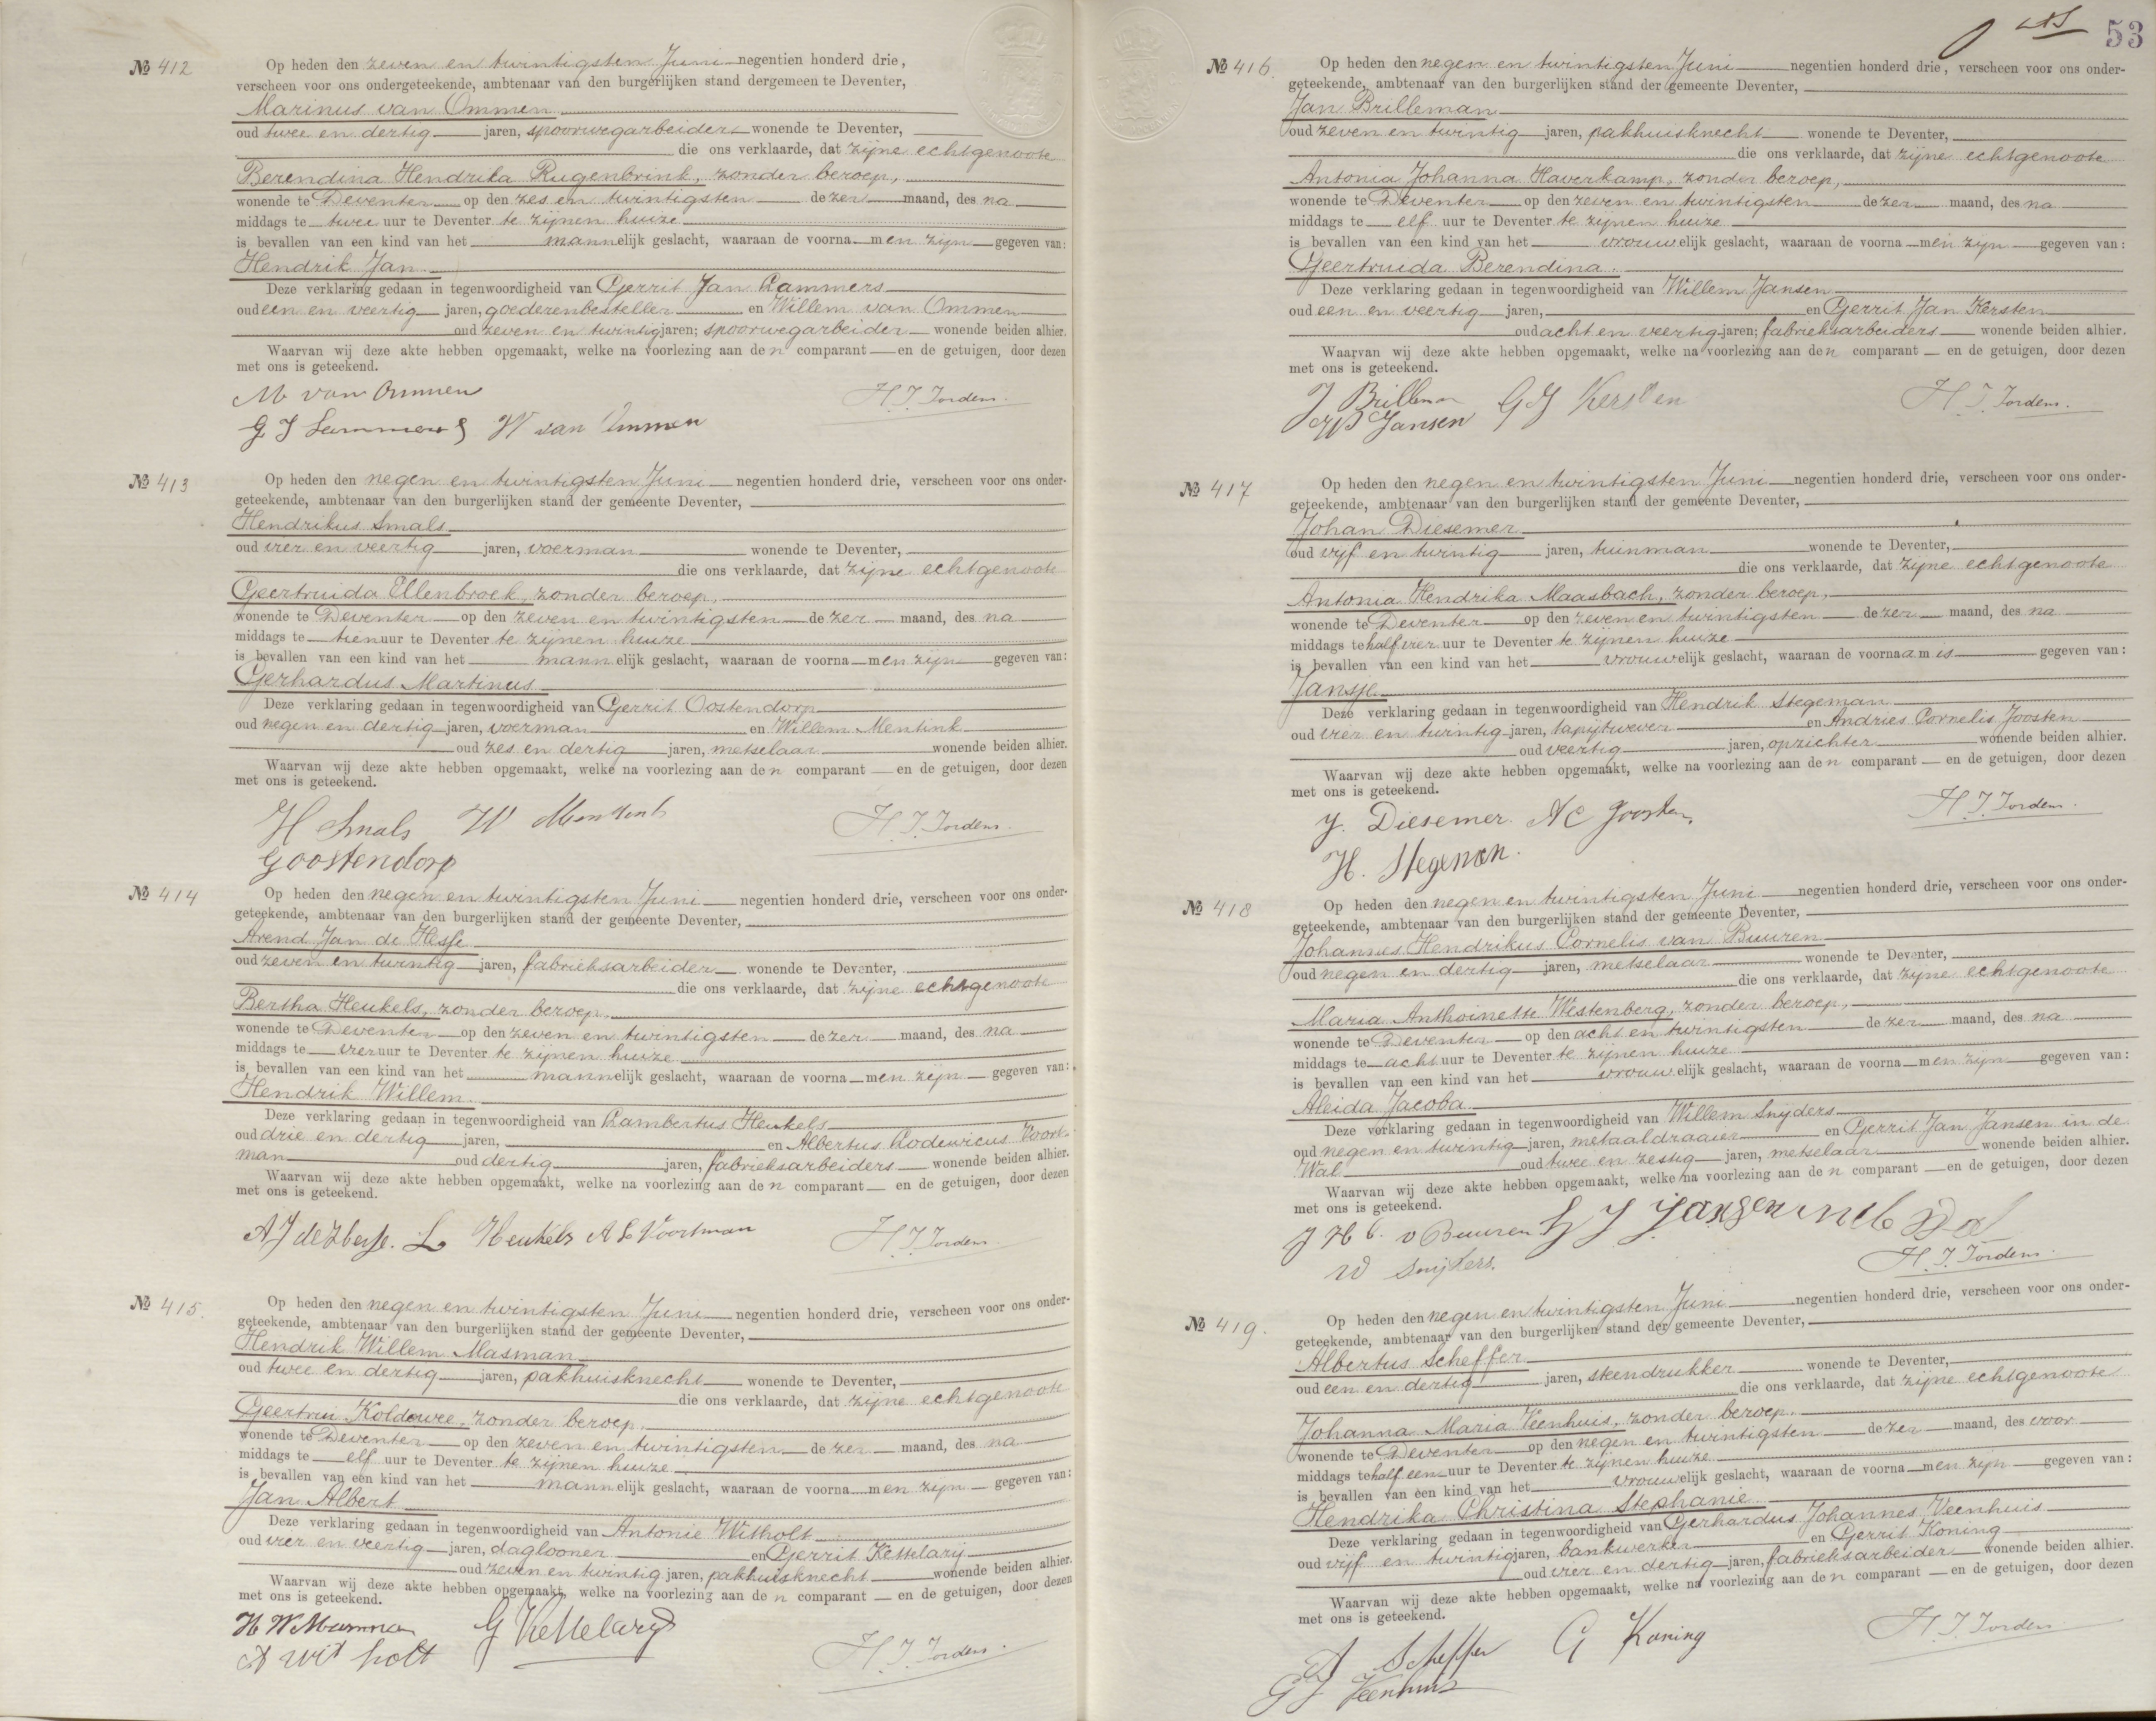 № 412
Op heden den zeven en twintigsten Juni negentien honderd drie,
verscheen voor ons ondergeteekende, ambtenaar van den burgerlijken stand dergemeen te Deventer,
Marinus van Ommen
oud twee en dertig jaren, spoorwegarbeider wonende te Deventer,
die ons verklaarde, dat zijne echtgenoote
Berendina Hendrika Rugenbrink, zonder beroep,
wonende te Deventer op den zes en twintigsten dezer maand, des na
middags te twee uur te Deventer te zijnen huize
is bevallen van een kind van het mannelijk geslacht, waaraan de voornamen zijn gegeven van:
Hendrik Jan
Deze verklaring gedaan in tegenwoordigheid van Gerrit Jan Lammers
oud een en veertig jaren, goederenbesteller en Willem van Ommen
oud zeven en twintig jaren; spoorwegarbeider wonende beiden alhier.
Waarvan wij deze akte hebben opgemaakt, welke na voorlezing aan den comparant en de getuigen, door dezen
met ons is geteekend.
M van Ommen H. J. Jordens.
G J Lammers W van Ommen
№ 413
Op heden den negen en twintigsten Juni negentien honderd drie, verscheen voor ons onder-
geteekende, ambtenaar van den burgerlijken stand der gemeente Deventer,
Hendrikus Smals
oud vier en veertig jaren, voerman wonende te Deventer,
die ons verklaarde, dat zijne echtgenoote
Geertruida Ellenbroek, zonder beroep,
wonende te Deventer op den zeven en twintigsten dezer maand, des na
middags te tien uur te Deventer te zijnen huize
is bevallen van een kind van het mannelijk geslacht, waaraan de voornamen zijn gegeven van:
Gerhardus Martinus
Deze verklaring gedaan in tegenwoordigheid van Gerrit Oostendorp
oud negen en dertig jaren, voerman en Willem Mentink
oud zes en dertig jaren, metselaar wonende beiden alhier.
Waarvan wij deze akte hebben opgemaakt, welke na voorlezing aan den comparant en de getuigen, door dezen
met ons is geteekend.
H Smals W Mentink H. J. Jordens.
G Oostendorp
№ 414
Op heden den negen en twintigsten Juni negentien honderd drie, verscheen voor ons onder-
geteekende, ambtenaar van den burgerlijken stand der gemeente Deventer,
Arend Jan de Hesse
oud zeven en twintig jaren, fabrieksarbeider wonende te Deventer,
die ons verklaarde, dat zijne echtgenoote
Bertha Heukels, zonder beroep,
wonende te Deventer op den zeven en twintigsten dezer maand, des na
middags te vier uur te Deventer te zijnen huize
is bevallen van een kind van het mannelijk geslacht, waaraan de voornamen zijn gegeven van:
Hendrik Willem
Deze verklaring gedaan in tegenwoordigheid van Lambertus Heukels
oud drie en dertig jaren, en Albertus Lodewicus Voort-
man oud dertig jaren, fabrieksarbeiders wonende beiden alhier.
Waarvan wij deze akte hebben opgemaakt, welke na voorlezing aan den comparant en de getuigen, door dezen
met ons is geteekend.
A J de Hesse. L Heukels A L Voortman H. J. Jordens.
№ 415.
Op heden den negen en twintigsten Juni negentien honderd drie, verscheen voor ons onder-
geteekende, ambtenaar van den burgerlijken stand der gemeente Deventer,
Hendrik Willem Masman
oud twee en dertig jaren, pakhuisknecht wonende te Deventer,
die ons verklaarde, dat zijne echtgenoote
Geertrui Koldewee, zonder beroep,
wonende te Deventer op den zeven en twintigsten dezer maand, des na
middags te elf uur te Deventer te zijnen huize
is bevallen van een kind van het mannelijk geslacht, waaraan de voornamen zijn gegeven van:
Jan Albert
Deze verklaring gedaan in tegenwoordigheid van Antonie Witholt
oud vier en veertig jaren, daglooner en Gerrit Kettelarij
oud zeven en twintig jaren, pakhuisknecht wonende beiden alhier.
Waarvan wij deze akte hebben opgemaakt, welke na voorlezing aan den comparant en de getuigen, door dezen
met ons is geteekend.
H W Masman G Kettelarij
A Witholt H. J. Jordens.
53
№ 416.
Op heden den negen en twintigsten Juni negentien honderd drie, verscheen voor ons onder-
geteekende, ambtenaar van den burgerlijken stand der gemeente Deventer,
Jan Brilleman
oud zeven en twintig jaren, pakhuisknecht wonende te Deventer,
die ons verklaarde, dat zijne echtgenoote
Antonia Johanna Haverkamp, zonder beroep,
wonende te Deventer op den zeven en twintigsten dezer maand, des na
middags te elf uur te Deventer te zijnen huize
is bevallen van een kind van het vrouwelijk geslacht, waaraan de voornamen zijn gegeven van:
Geertruida Berendina.
Deze verklaring gedaan in tegenwoordigheid van Willem Jansen
oud een en veertig jaren, en Gerrit Jan Kersten
oud acht en veertig jaren; fabrieksarbeiders wonende beiden alhier.
Waarvan wij deze akte hebben opgemaakt, welke na voorlezing aan den comparant en de getuigen, door dezen
met ons is geteekend.
J Brilleman G J Kersten H. J. Jordens.
W Jansen
№ 417
Op heden den negen en twintigsten Juni negentien honderd drie, verscheen voor ons onder-
geteekende, ambtenaar van den burgerlijken stand der gemeente Deventer,
Johan Diesemer
oud vijf en twintig jaren, tuinman wonende te Deventer,
die ons verklaarde, dat zijne echtgenoote
Antonia Hendrika Maasbach, zonder beroep,
wonende te Deventer op den zeven en twintigsten dezer maand, des na
middags te half vier uur te Deventer te zijnen huize
is bevallen van een kind van het vrouwelijk geslacht, waaraan de voornaam is gegeven van:
Jansje
Deze verklaring gedaan in tegenwoordigheid van Hendrik Stegeman
oud vier en twintig jaren, tapijtwever en Andries Cornelis Joosten
oud veertig jaren, opzichter wonende beiden alhier.
Waarvan wij deze akte hebben opgemaakt, welke na voorlezing aan den comparant en de getuigen, door dezen
met ons is geteekend.
J. Diesemer. A C Joosten, H. J. Jordens.
H. Stegeman.
№ 418
Op heden den negen en twintigsten Juni negentien honderd drie, verscheen voor ons onder-
geteekende, ambtenaar van den burgerlijken stand der gemeente Deventer,
Johannes Hendrikus Cornelis van Buuren
oud negen en dertig jaren, metselaar wonende te Deventer,
die ons verklaarde, dat zijne echtgenoote
Maria Anthoinette Westenberg, zonder beroep,
wonende te Deventer op den acht en twintigsten dezer maand, des na
middags te acht uur te Deventer te zijnen huize
is bevallen van een kind van het vrouwelijk geslacht, waaraan de voornamen zijn gegeven van:
Aleida Jacoba
Deze verklaring gedaan in tegenwoordigheid van Willem Snyders
oud negen en twintig jaren, metaaldraaier en Gerrit Jan Jansen in de
Wal oud twee en zestig jaren, metselaar wonende beiden alhier.
Waarvan wij deze akte hebben opgemaakt, welke na voorlezing aan den comparant en de getuigen, door dezen
met ons is geteekend.
J H C. v Buuren G J Jansen in de Wal
W Snijders. H. J. Jordens.
№ 419.
Op heden den negen en twintigsten Juni negentien honderd drie, verscheen voor ons onder-
geteekende, ambtenaar van den burgerlijken stand der gemeente Deventer,
Albertus Scheffer
oud een en dertig jaren, steendrukker wonende te Deventer,
die ons verklaarde, dat zijne echtgenoote
Johanna Maria Veenhuis, zonder beroep,
wonende te Deventer op den negen en twintigsten dezer maand, des voor
middags te half een uur te Deventer te zijnen huize
is bevallen van een kind van het vrouwelijk geslacht, waaraan de voornamen zijn gegeven van:
Hendrika Christina Stephanie
Deze verklaring gedaan in tegenwoordigheid van Gerhardus Johannes Veenhuis
oud vijf en twintig jaren, bankwerker en Gerrit Koning
oud vier en dertig jaren, fabrieksarbeider wonende beiden alhier.
Waarvan wij deze akte hebben opgemaakt, welke na voorlezing aan den comparant en de getuigen, door dezen
met ons is geteekend.
A Scheffer G Koning H. J. Jordens
G J Veenhuis